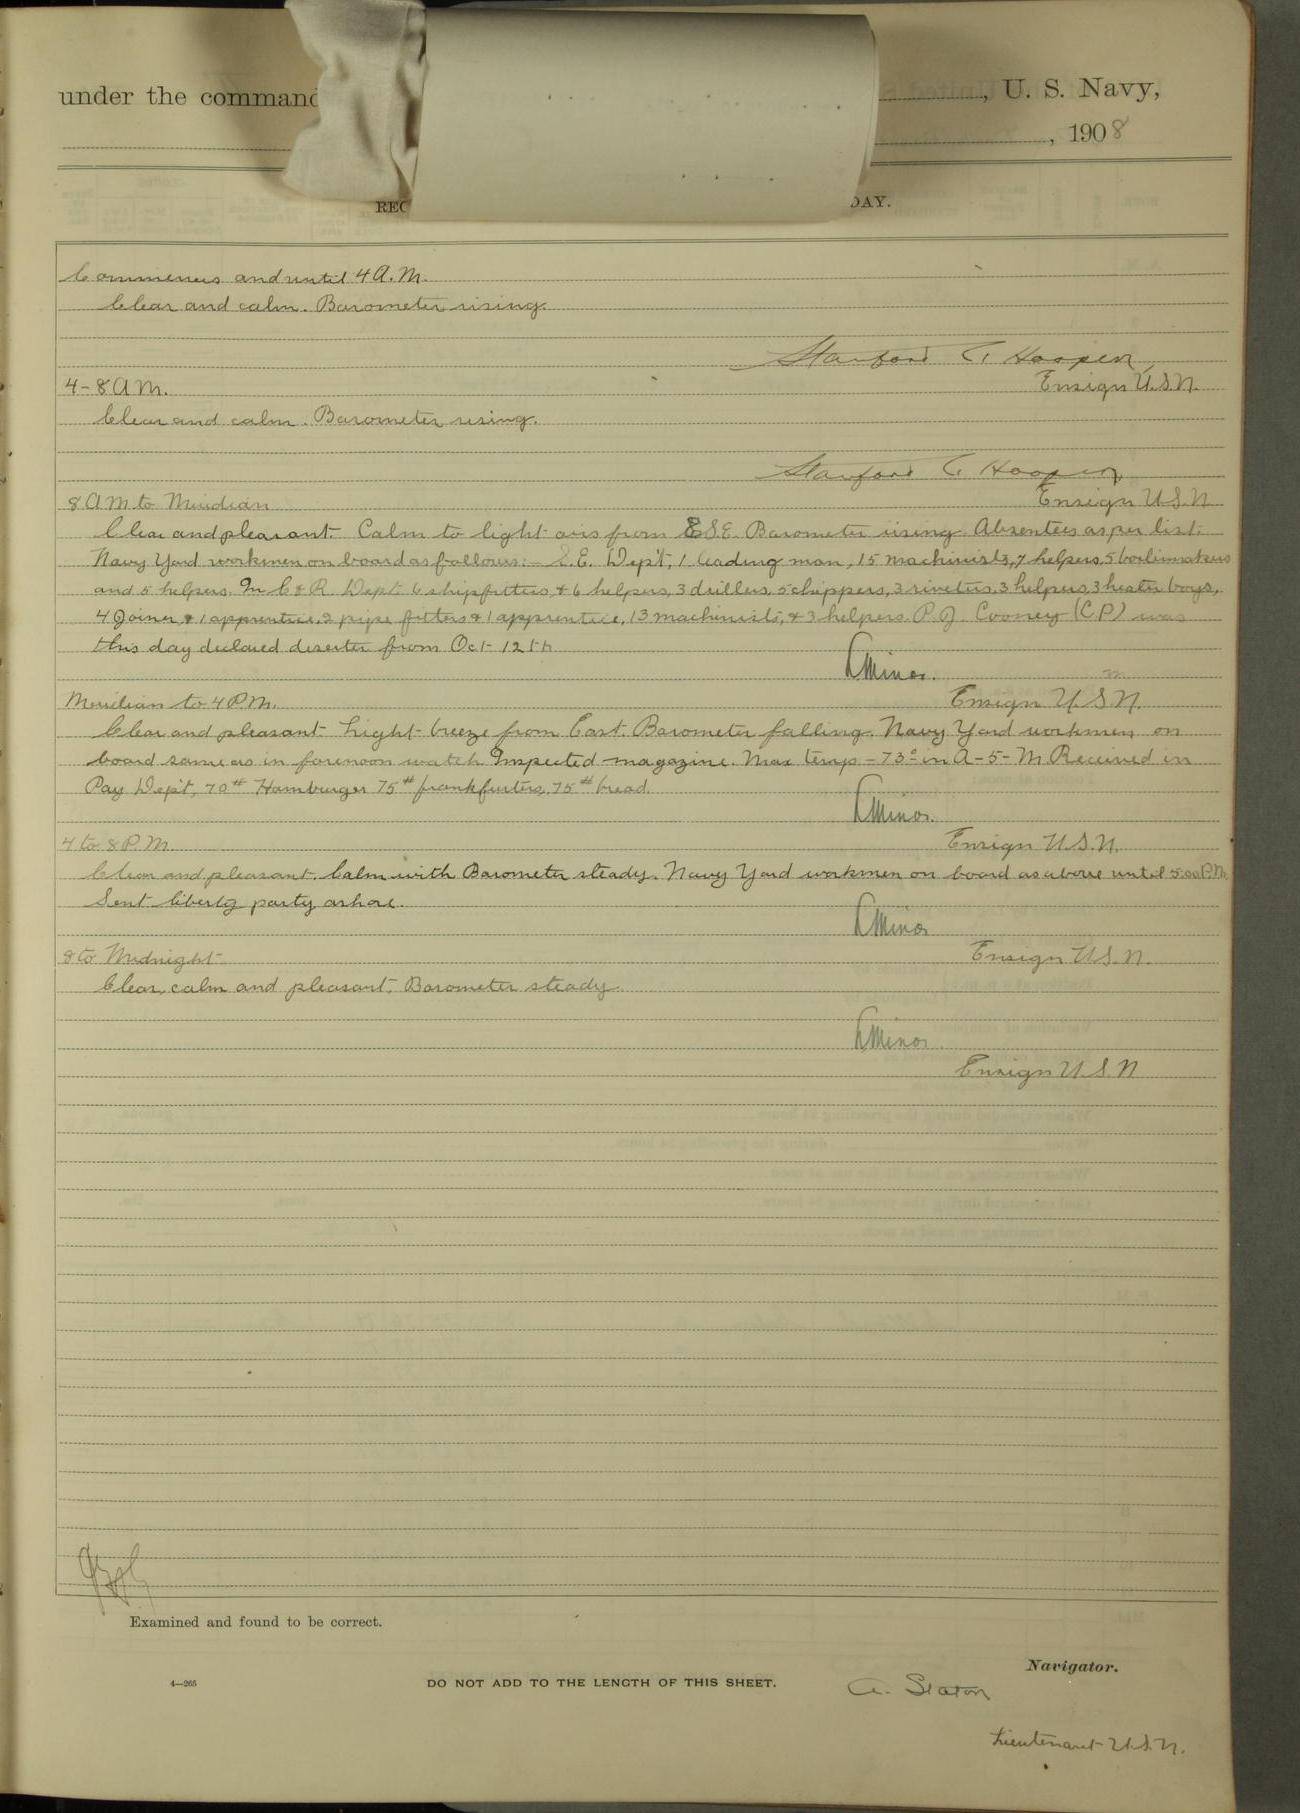 under the command , U. S. Navy,
, 1908
REC DAY.
Commences and until 4 A.M.
Clear and calm. Barometer rising.
Stanford C. Hooper,
Ensign U.S.N.
4-8 A M.
Clear and calm. Barometer rising.
Stanford C. Hooper
Ensign U S N
8 A M to Meridian
Clear and pleasant. Calm to light airs from S.E. Barometer rising. Absentees as per list.
Navy Yard workmen on board as follows:- S.E. Dep't, 1 leading man, 15 machinists, 7 helpers, 5 boilermakers
and 5 helpers. In C & R. Dept. 6 shipfitters & 6 helpers, 3 drillers, 5 chippers, 3 riveters, 3 helpers, 3 heater boys,
4 Joiners & 1 apprentice, 2 pipe fitters & 1 apprentice, 13 machinists, & 3 helpers. P. J. Cooney (C.P.) was
this day declared deserter from Oct 12th
Minor.
Ensign U.S.N.
Meridian to 4 P.M.
Clear and pleasant Light breeze from East. Barometer falling. Navy Yard workmen on
board same as in forenoon watch. Inspected magazine. Max temp - 73° in A-5-M. Received in
Pay Dep't, 70# Hamburger 75# frankfurters, 75# bread.
Minor.
Ensign U.S.N.
4 to 8 P.M.
Clear and pleasant. Calm with Barometer steady. Navy Yard workmen on board as above until 5.00 P.M.
Sent liberty party ashore.
Minor
Ensign U.S.N.
8 to Midnight
Clear, calm and pleasant. Barometer steady.
Minor
Ensign U.S.N
Examined and found to be correct.
Navigator.
4—265
DO NOT ADD TO THE LENGTH OF THIS SHEET.
A. Staton
Lieutenant U.S.N.